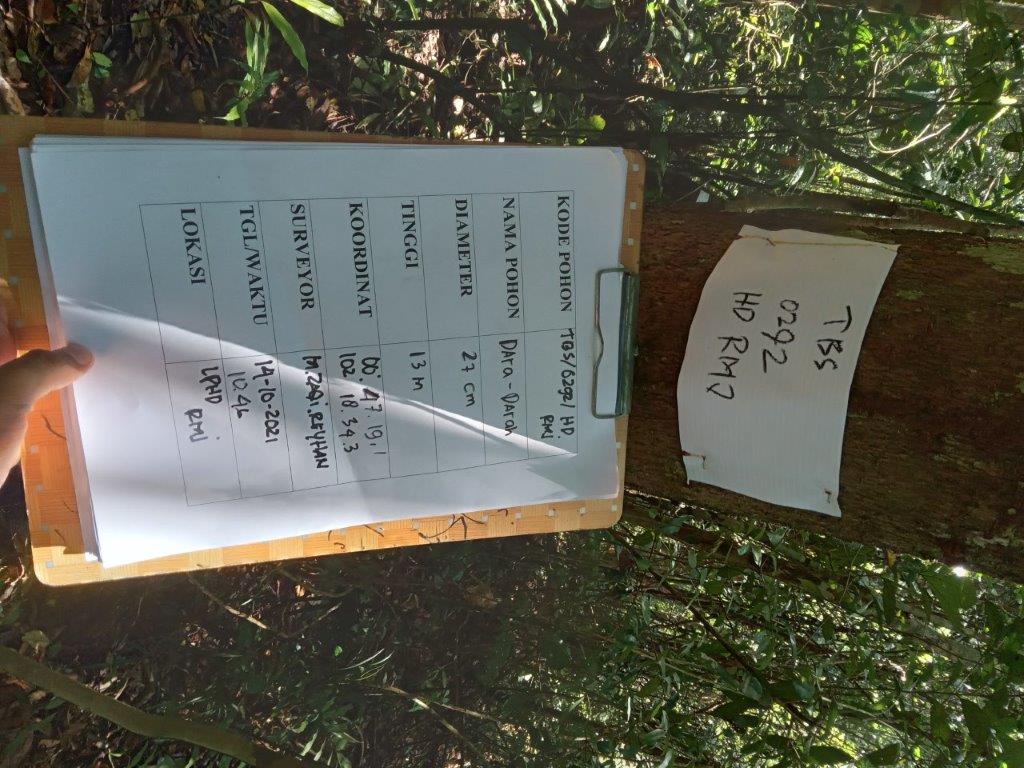 TBS
0292
HD RMJ
KODE POHON TBS/0292/ HD.
RMJ
NAMA POHON DAra - DArah
DIAMETER 27 cm
TINGGI 13 M
KOORDINAT 00°. 47. 19,1
102. 18. 34.3
SURVEYOR M.ZAQi.REYHAN
TGL/WAKTU 14-10-2021
10.46
LOKASI LPHD
RMJ